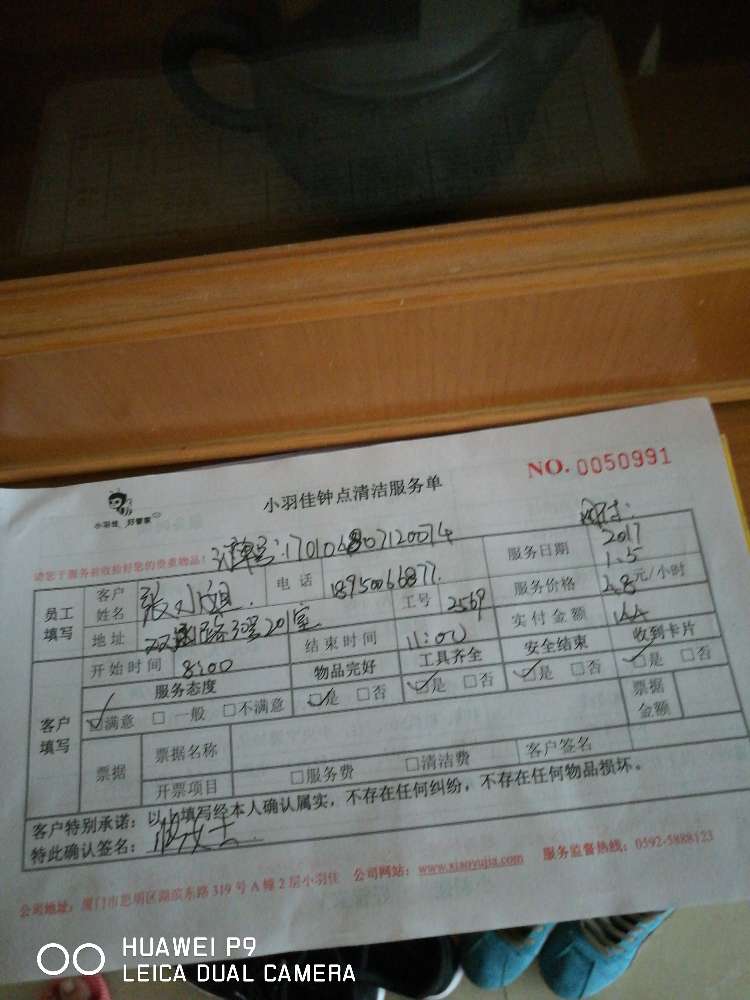 NO. 0050991
小羽佳 好管家
小羽佳钟点清洁服务单
请您于服务前收拾好您的贵重物品!
员工填写 客户姓名 张小姐 电话 18950066877 服务日期 2017 1.5
地址 201室 工号 2569 服务价格 48 元/小时
开始时间 8:00 结束时间 11:00 实付金额 144
客户填写 服务态度 物品完好 工具齐全 安全结束 收到卡片
☑满意 □一般 □不满意 ☑是 □否 ☑是 □否 ☑是 □否 ☑是 □否
票据 票据名称 票据金额
开票项目 □服务费 □清洁费 客户签名
客户特别承诺:以上填写经本人确认属实,不存在任何纠纷,不存在任何物品损坏。
特此确认签名:
公司地址:厦门市思明区湖滨东路319号A幢2层小羽佳 公司网站:www.xiaoyujia.com 服务监督热线:0592-5888123
HUAWEI P9
LEICA DUAL CAMERA